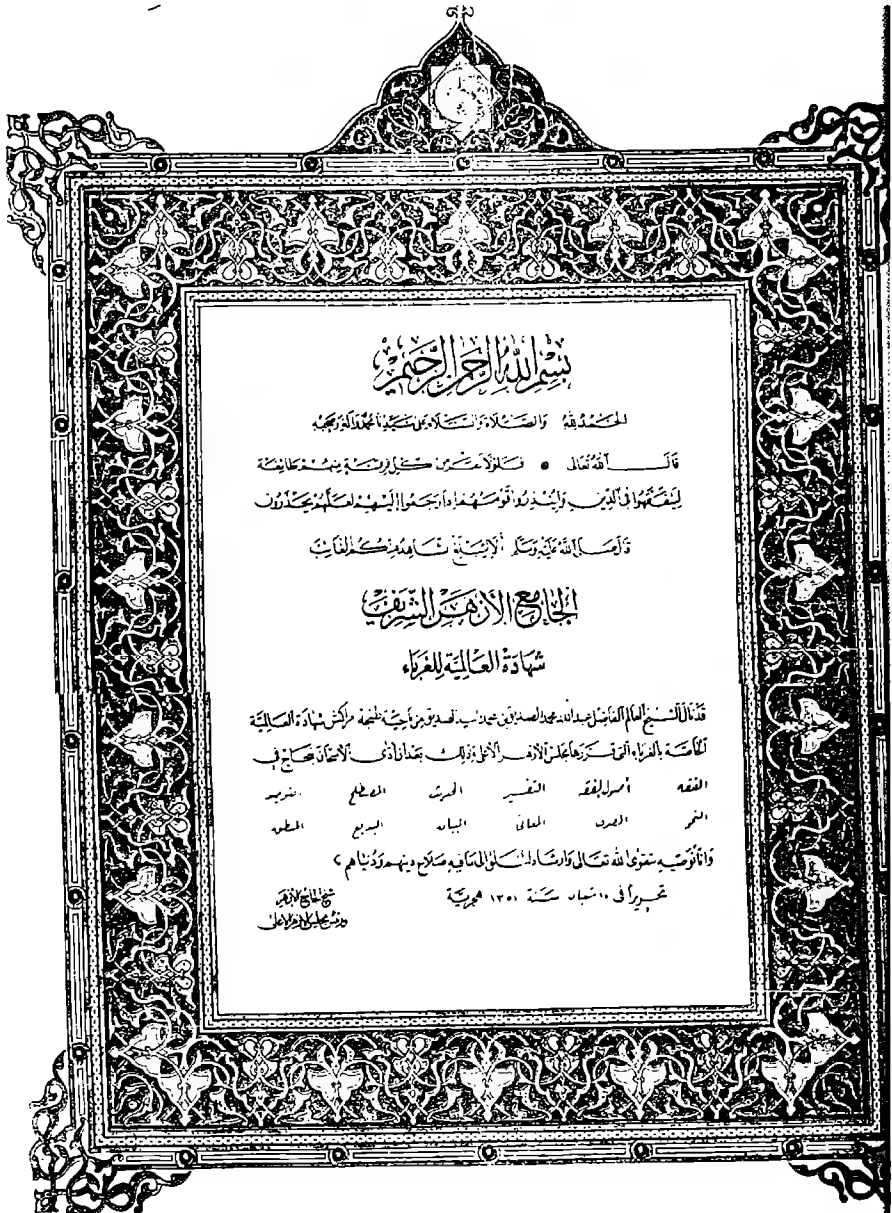 بسم الله الرحمن الرحيم
الحمد لله والصلاة والسلام على سيدنا محمد وآله وصحبه
قال الله تعالى • فلولا نفر من كل فرقة منهم طائفة
ليتفقهوا في الدين ولينذروا قومهم إذا رجعوا إليهم لعلهم يحذرون
قال صلى الله عليه وسلم ألا ليبلغ شاهدكم الغائب
الجامع الأزهر الشريف
شهادة العالمية للغرباء
قد نال الشيخ العالم الفاضل عبد الله محمد الصديق بن محمد الصديق من ناحية طنجة مراكش شهادة العالمية
الخاصة بالغرباء التي قررها مجلس الأزهر الأعلى وذلك بعد أن أدى الامتحان بنجاح في
الفقه أصول الفقه التفسير الحديث المصطلح توحيد
النحو الصرف المعاني البيان البديع المنطق
وإنا نوصيه بتقوى الله تعالى وإرشاد الخلق إلى ما فيه صلاح دينهم ودنياهم
تحريراً في ١٥ شعبان سنة ١٣٥١ هجرية
شيخ الجامع الأزهر
ورئيس مجلس الأزهر الأعلى